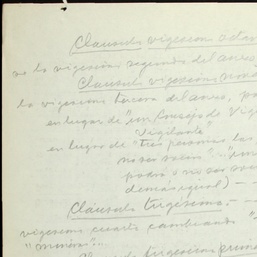 Clausula vigésima octava
de la vigésima segunda del anexo
Clausula vigésima novena
la vigésima tercera del anexo, po
en lugar de "un Consejo de Vig
Vigilante"
en lugar de "tres personas las
no sea socio"... "un
podrá o no ser soc
demás igual) —
Cláusula trigésima, —
vigésima cuarta cambiando "
"nombra"...
trigésima prim